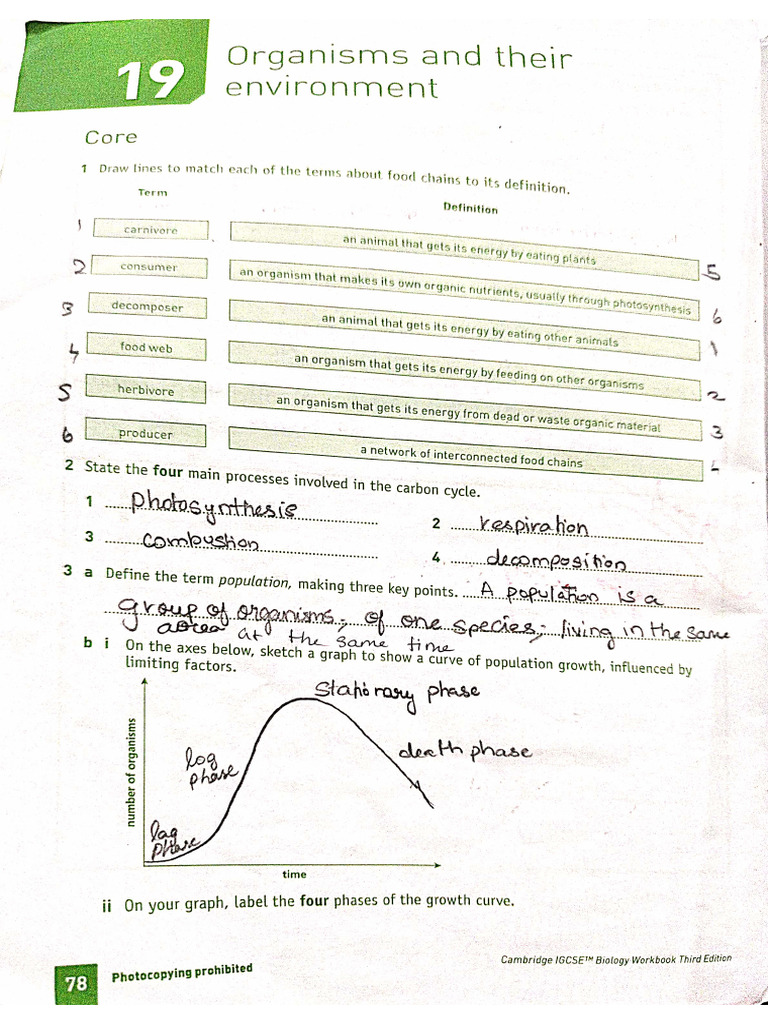 19
Organisms and their
environment
Core
1 Draw lines to match each of the terms about food chains to its definition.
Term
Definition
1 carnivore
an animal that gets its energy by eating plants 5
2 consumer
an organism that makes its own organic nutrients, usually through photosynthesis 6
3 decomposer
an animal that gets its energy by eating other animals 1
4 food web
an organism that gets its energy by feeding on other organisms 2
5 herbivore
an organism that gets its energy from dead or waste organic material 3
6 producer
a network of interconnected food chains
2 State the four main processes involved in the carbon cycle.
1 Photosynthesis
2 respiration
3 combustion
4 decomposition
3 a Define the term population, making three key points. A population is a
group of organisms; of one species; living in the same
at the same time
b i On the axes below, sketch a graph to show a curve of population growth, influenced by
limiting factors.
number of organisms
stationary phase
death phase
log
phase
lag
phase
time
ii On your graph, label the four phases of the growth curve.
78
Photocopying prohibited
Cambridge IGCSE™ Biology Workbook Third Edition